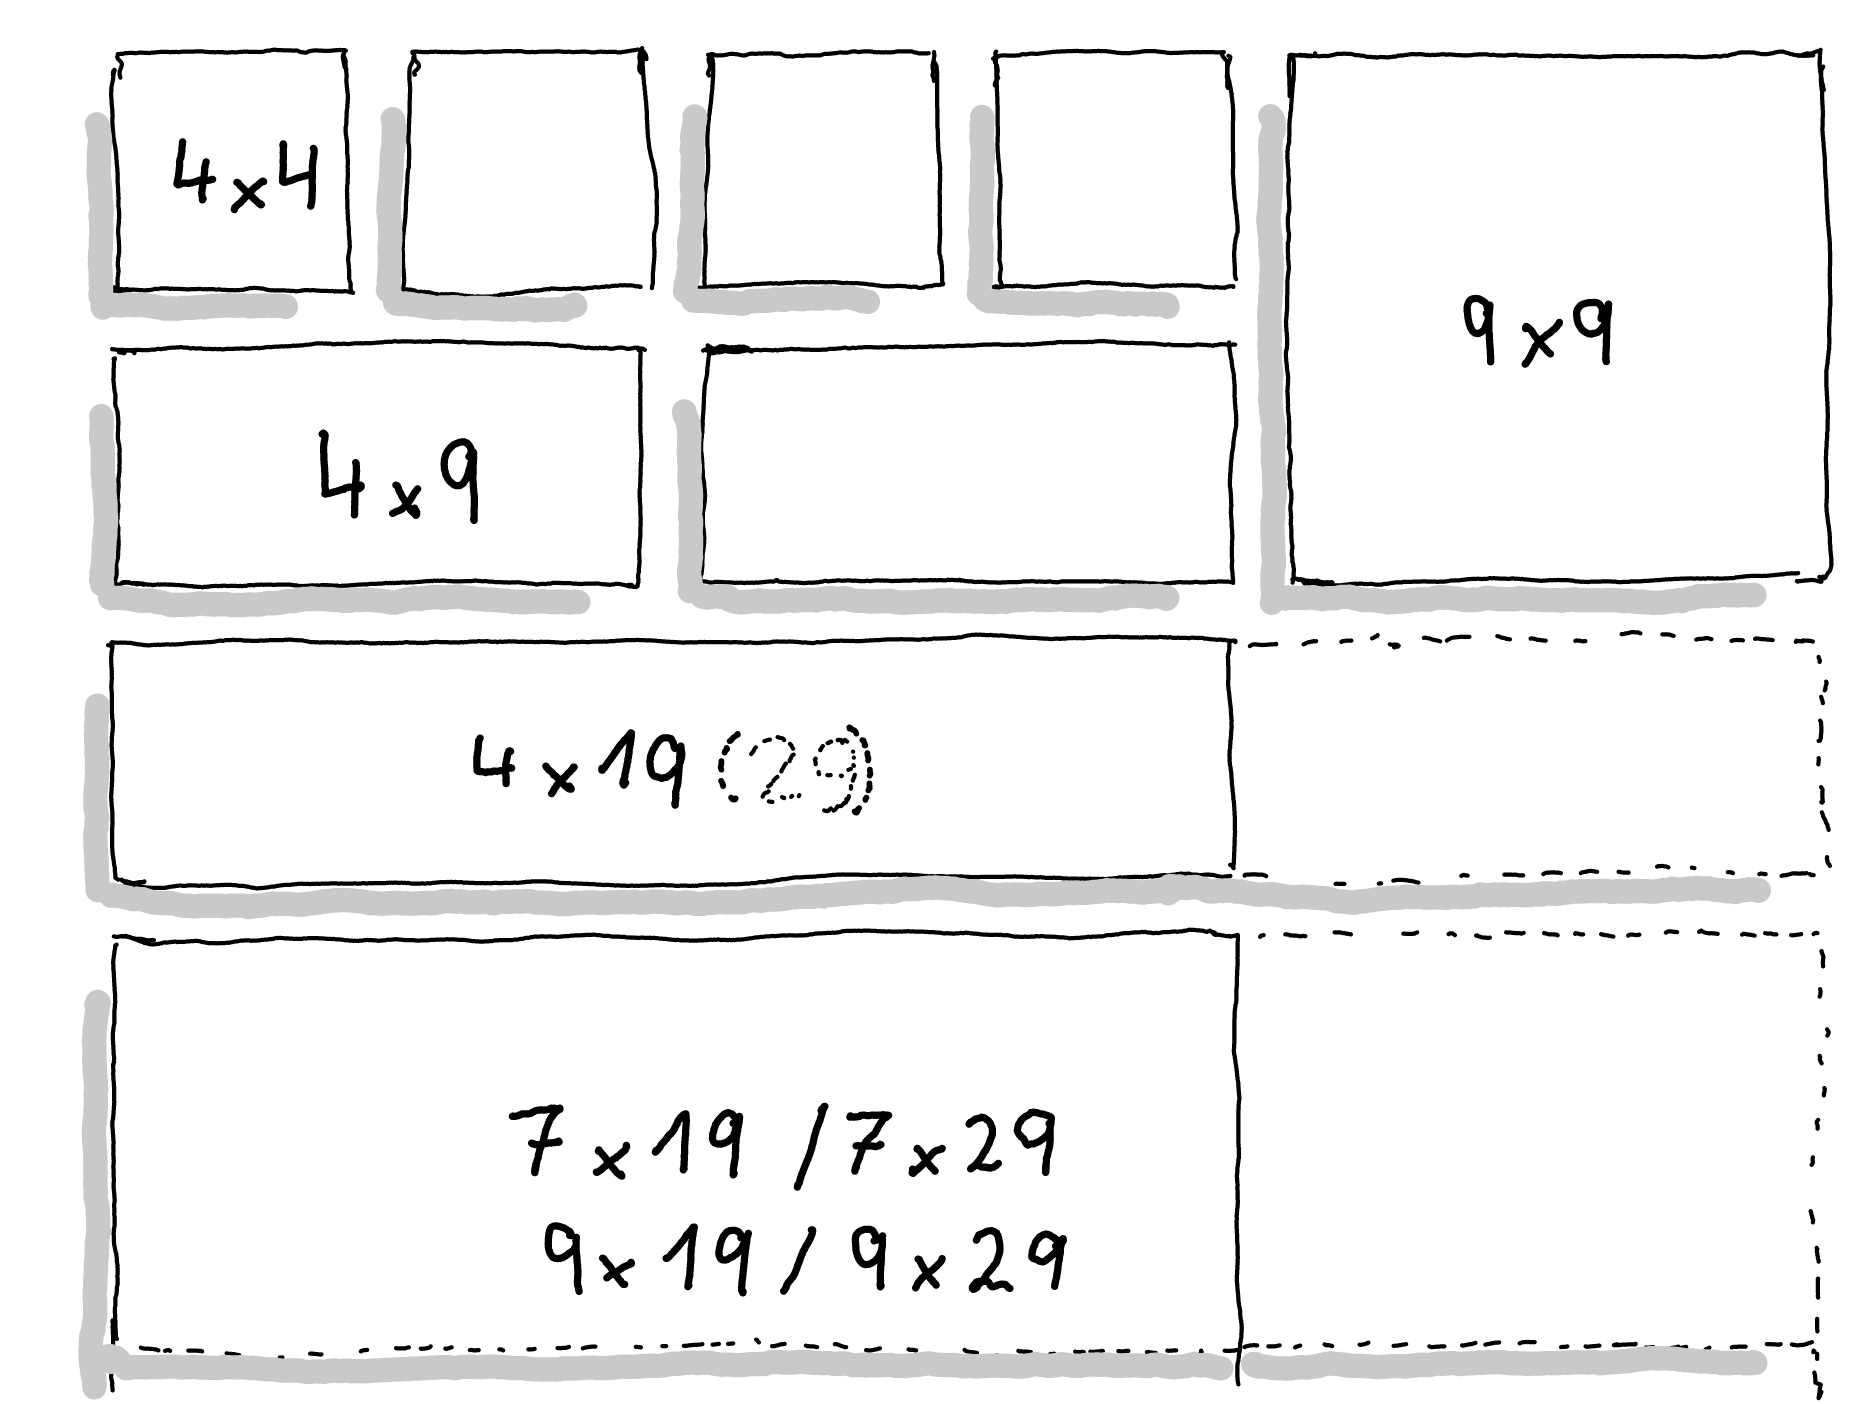 4x4
9x9
4x9
4x19 (29)
7x19 / 7x29
9x19 / 9x29